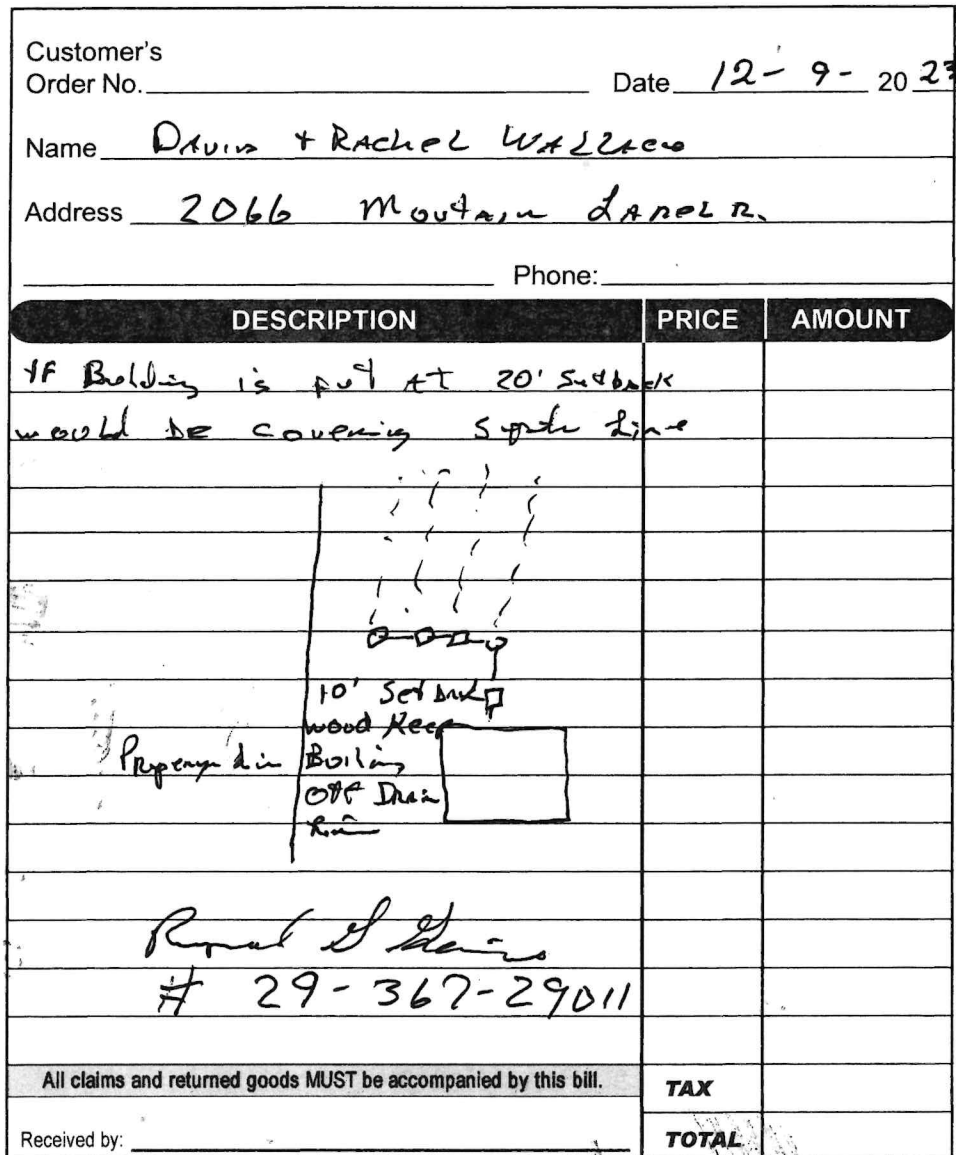 Customer's
Order No.
Date 12 - 9 - 20 23
Name David + Rachel Wallace
Address 2066 Moutain Laurel R.
Phone:
DESCRIPTION PRICE AMOUNT
If Building is put at 20' Setback
would be covering Septic Line
10' Setback
wood Keep
Property Line Building
Off Drain
Line
# 29-367-29011
All claims and returned goods MUST be accompanied by this bill.
TAX
Received by:
TOTAL